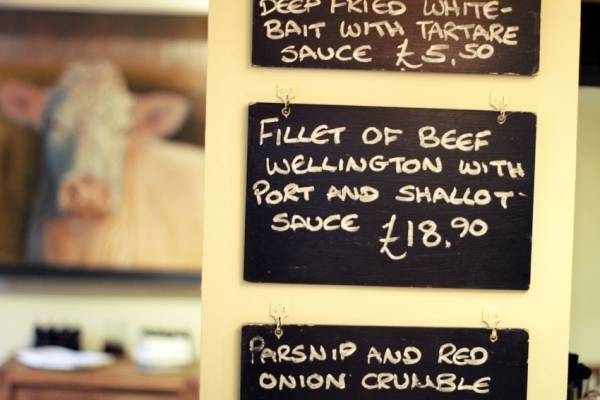 DEEP FRIED WHITE-
BAIT WITH TARTARE
SAUCE £5.50
FILLET OF BEEF
WELLINGTON WITH
PORT AND SHALLOT
SAUCE £18.90
PARSNIP AND RED
ONION CRUMBLE